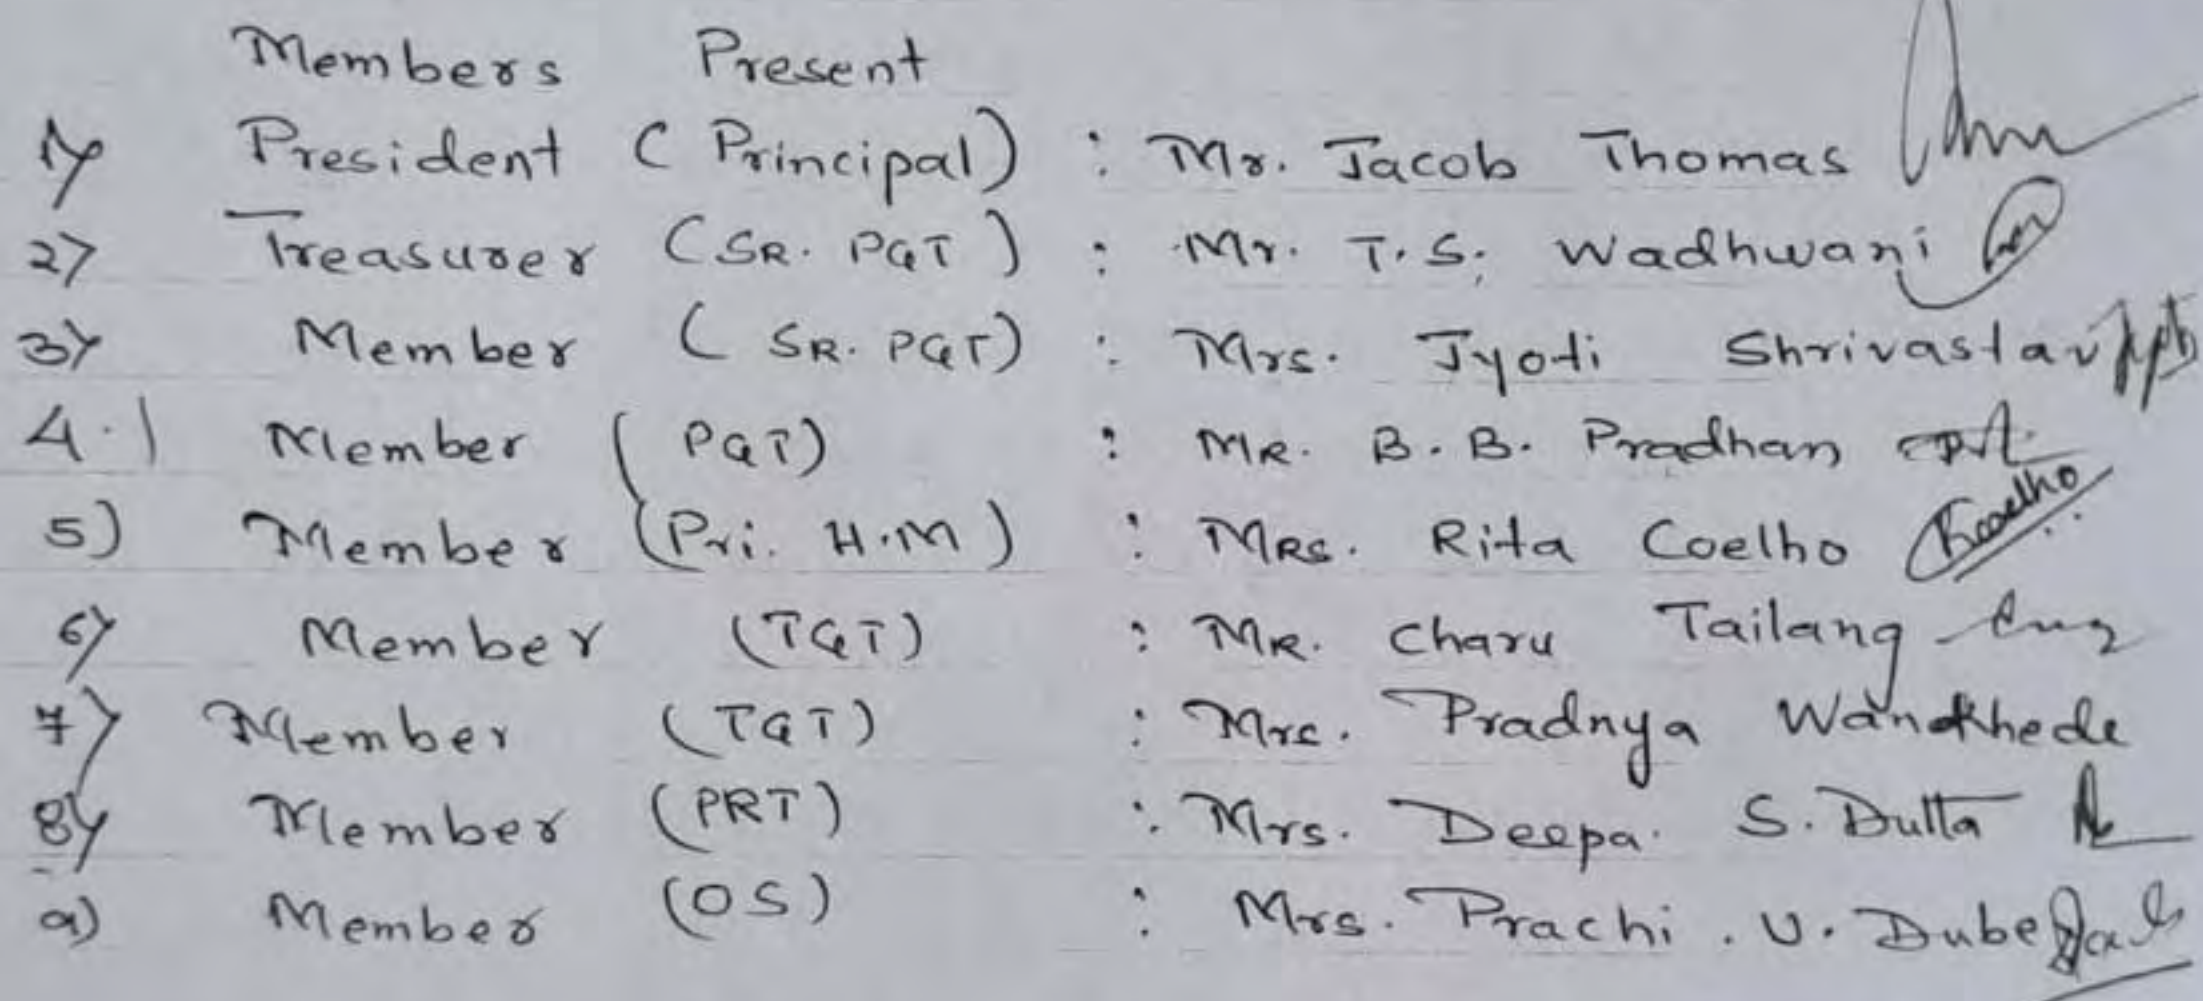 Members Present
1) President (Principal) : Mr. Jacob Thomas
2) Treasurer (SR. PGT) : Mr. T.S. Wadhwani
3) Member (SR. PGT) : Mrs. Jyoti Shrivastav
4.) Member (PGT) : MR. B.B. Pradhan
5) Member (Pri. H.M) : MRs. Rita Coelho
6) Member (TGT) : MR. Charu Tailang
7) Member (TGT) : Mrs. Pradnya Wankhede
8) Member (PRT) : Mrs. Deepa. S. Dutta
9) Member (OS) : Mrs. Prachi. U. Dube